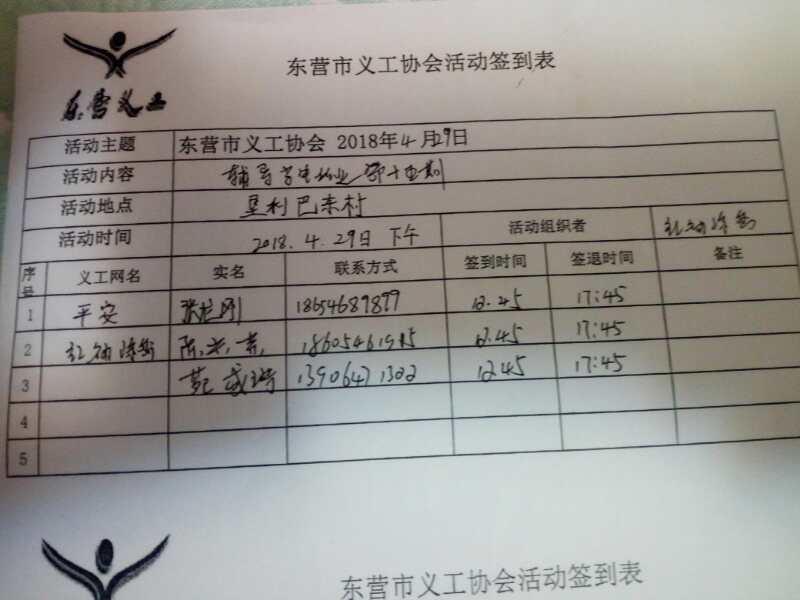 东营市义工协会活动签到表
东营义工
活动主题 东营市义工协会 2018年4月29日
活动内容 辅导学生作业 第十五期
活动地点 垦利巴东村
活动时间 2018.4.29日 下午 活动组织者
序号 义工网名 实名 联系方式 签到时间 签退时间 备注
1 平安 18654689899 12.45 17:45
2 12.45 17:45
3 13906471302 12.45 17:45
4
5
东营市义工协会活动签到表